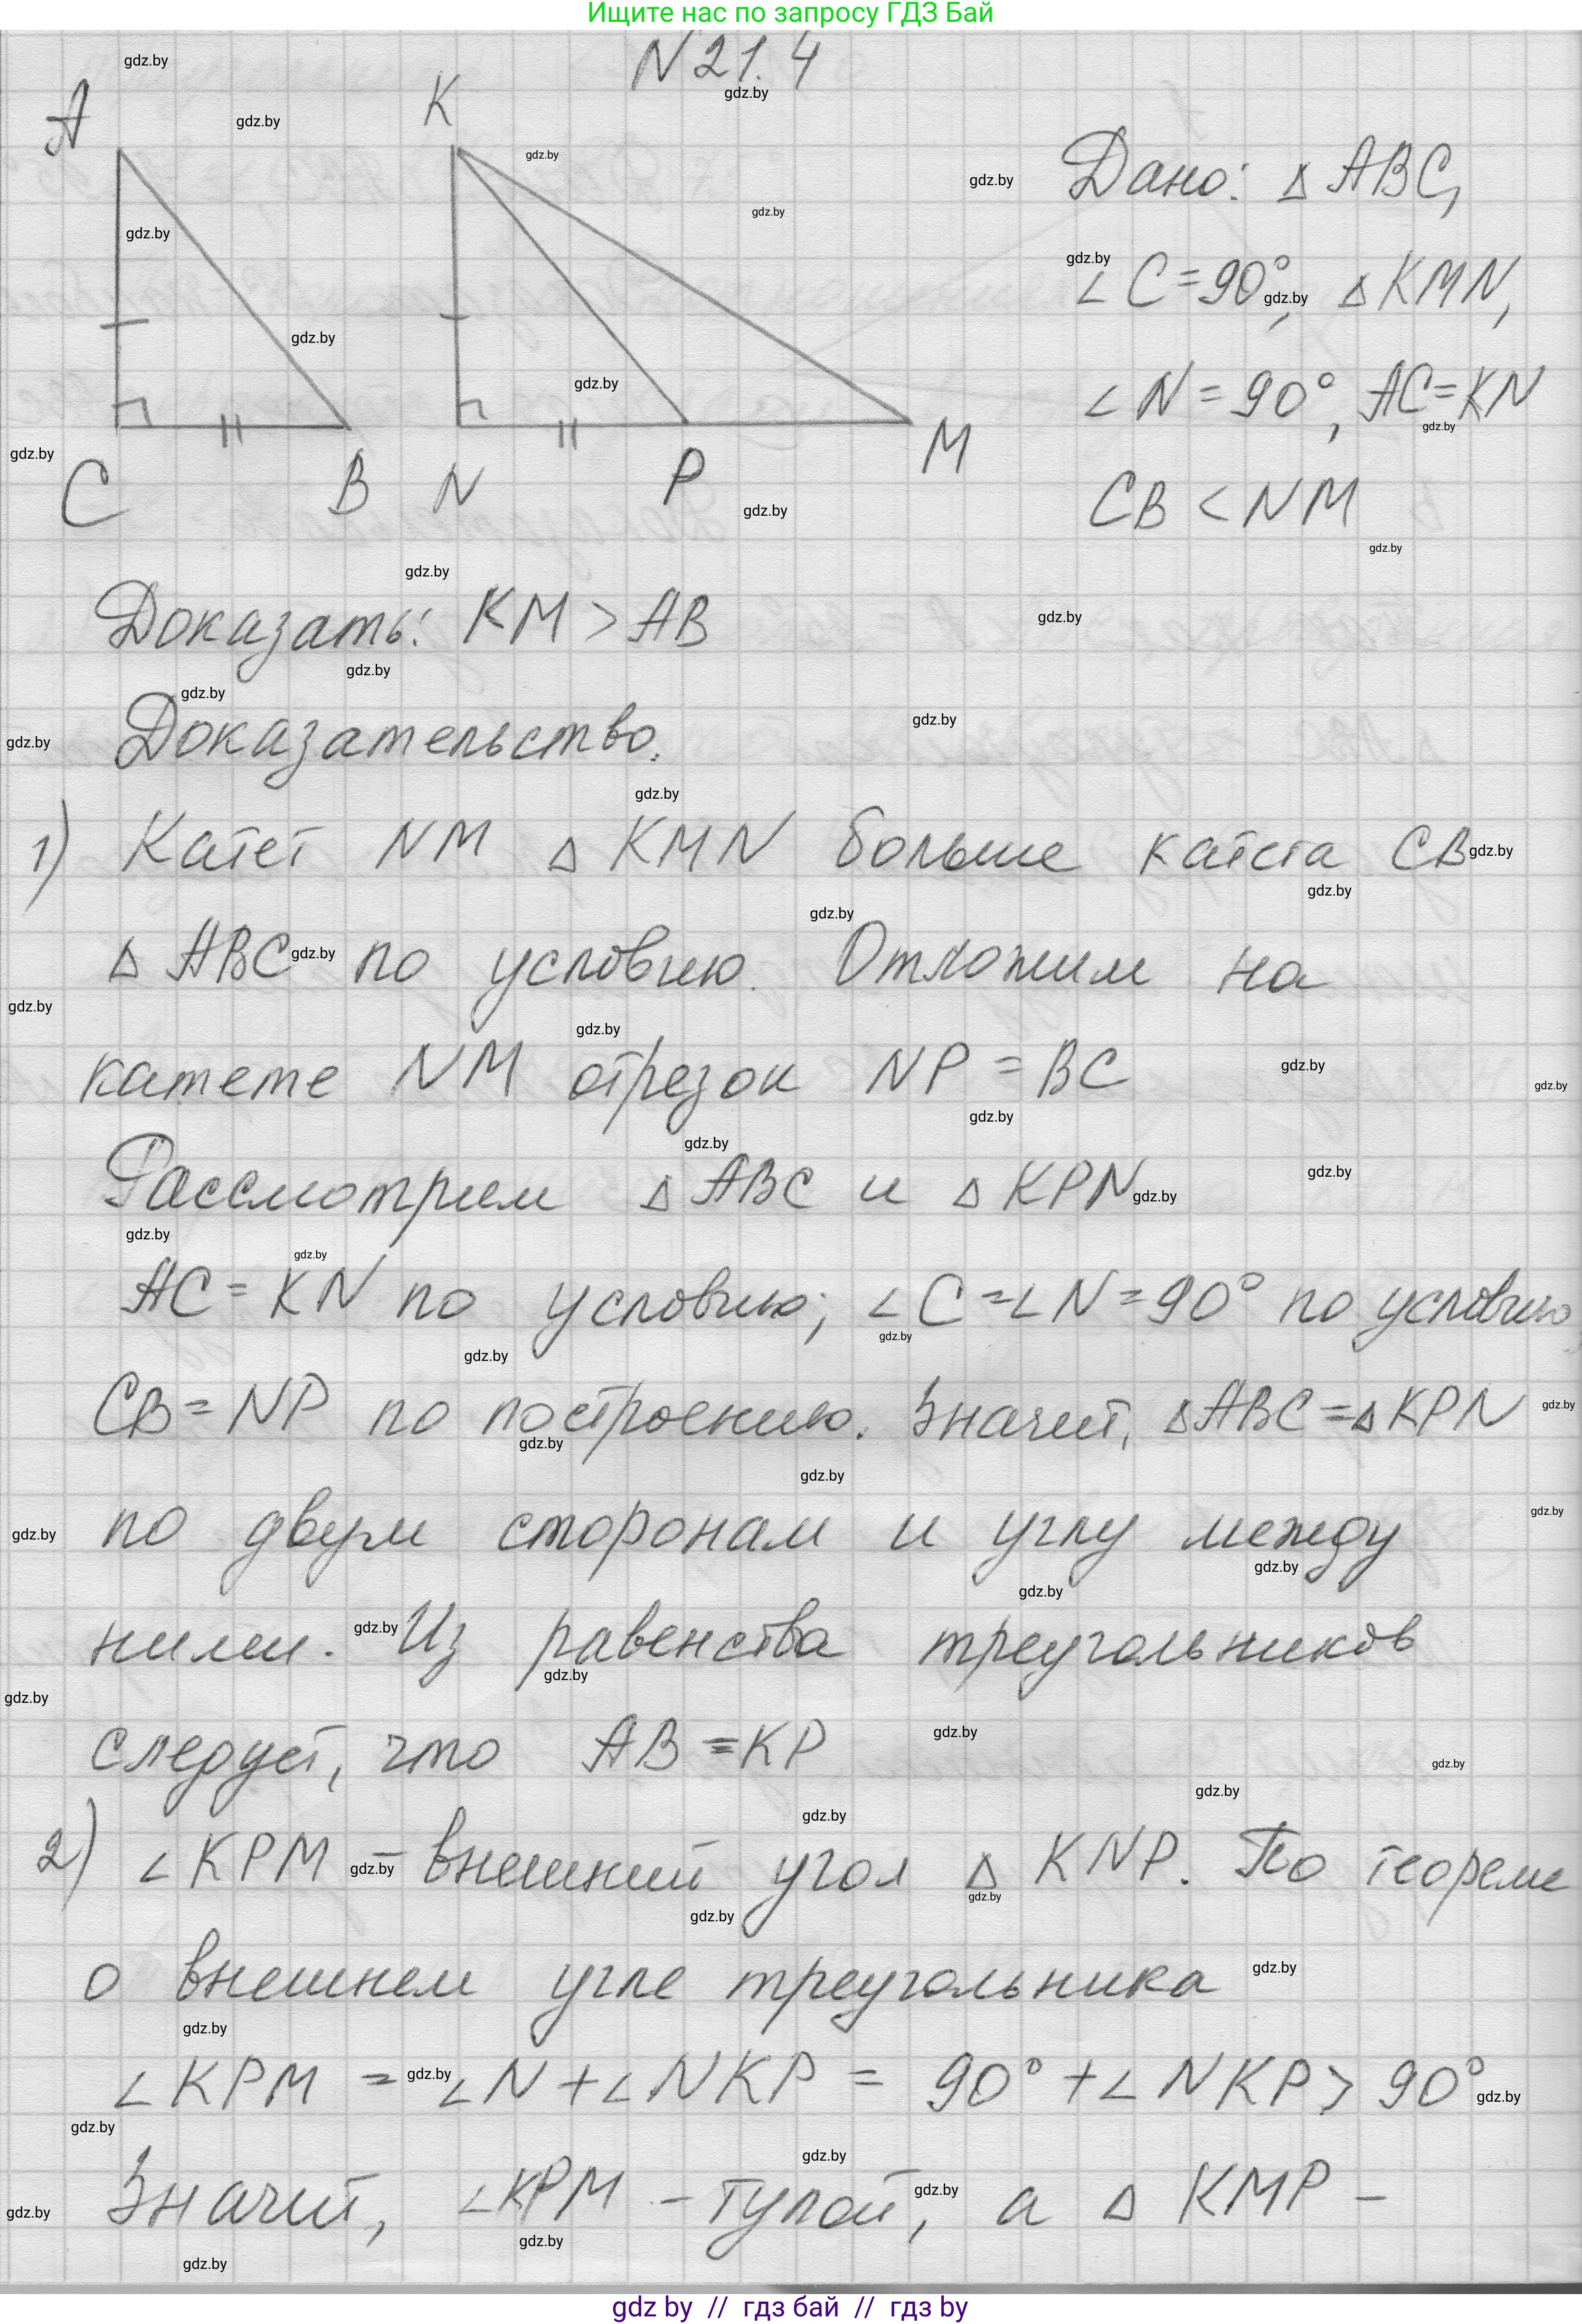 Ищите нас по запросу ГДЗ Бай
N 21.4
A
K
C
B
N
P
M
Дано: △ ABC,
∠ C = 90°, △ KMN,
∠ N = 90°, AC = KN
CB < NM
Доказать: KM > AB
Доказательство.
1) Катет NM △ KMN больше катета CB
△ ABC по условию. Отложим на
катете NM отрезок NP = BC
Рассмотрим △ ABC и △ KPN
AC = KN по условию; ∠ C = ∠ N = 90° по условию,
CB = NP по построению. Значит, △ ABC = △ KPN
по двум сторонам и углу между
ними. Из равенства треугольников
следует, что AB = KP
2) ∠ KPM – внешний угол △ KNP. По теореме
о внешнем угле треугольника
∠ KPM = ∠ N + ∠ NKP = 90° + ∠ NKP > 90°
Значит, ∠ KPM – тупой, а △ KMP –
gdz by // гдз бай // гдз by